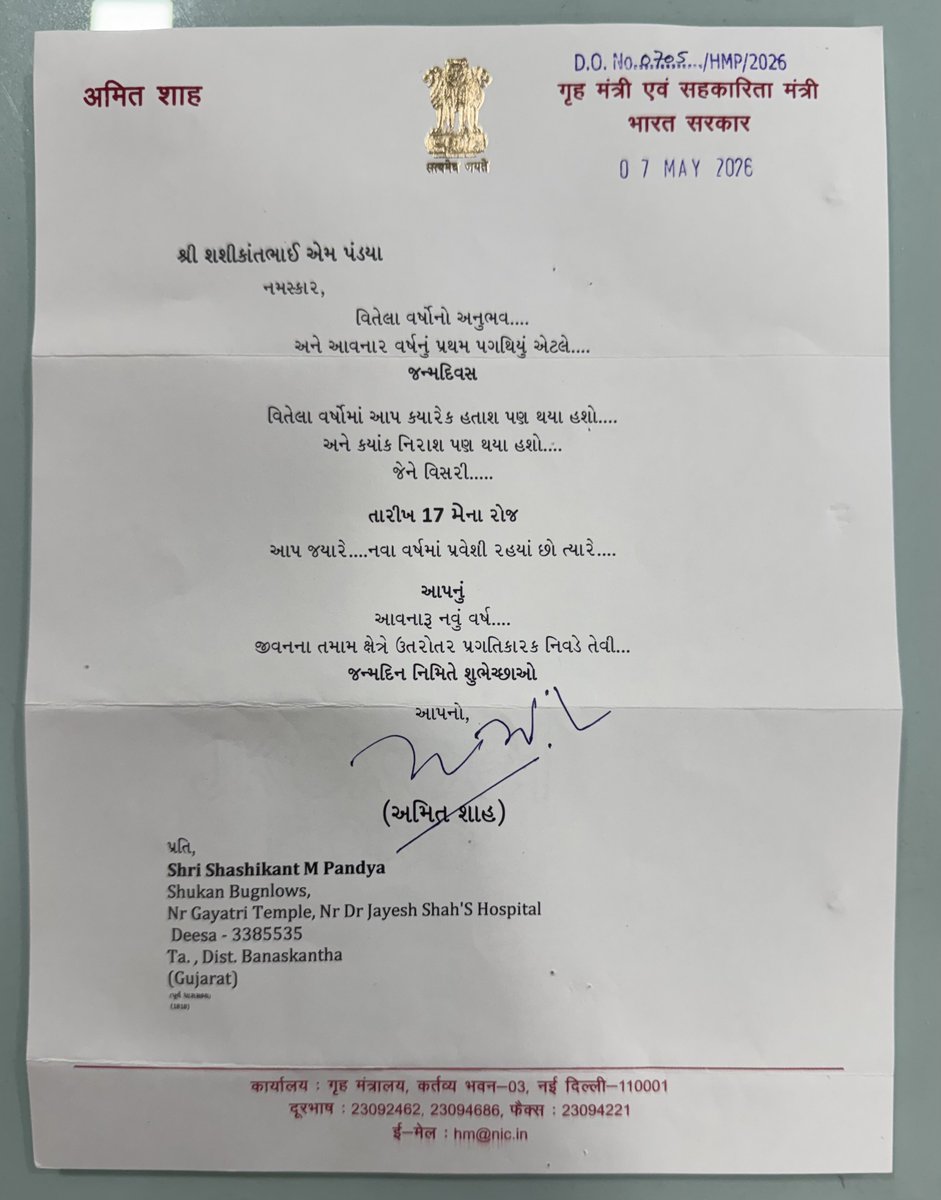 D.O. No. 0705/HMP/2026
अमित शाह
गृह मंत्री एवं सहकारिता मंत्री
भारत सरकार
सत्यमेव जयते
07 MAY 2026
શ્રી શશીકાંતભાઈ એમ પંડયા
નમસ્કાર,
વિતેલા વર્ષોનો અનુભવ....
અને આવનાર વર્ષનું પ્રથમ પગથિયું એટલે....
જન્મદિવસ
વિતેલા વર્ષોમાં આપ કયારેક હતાશ પણ થયા હશો....
અને કયાંક નિરાશ પણ થયા હશો....
જેને વિસરી.....
તારીખ 17 મેના રોજ
આપ જયારે....નવા વર્ષમાં પ્રવેશી રહયાં છો ત્યારે....
આપનું
આવનારૂ નવું વર્ષ....
જીવનના તમામ ક્ષેત્રે ઉતરોતર પ્રગતિકારક નિવડે તેવી...
જન્મદિન નિમિતે શુભેચ્છાઓ
આપનો,
(અમિત શાહ)
પ્રતિ,
Shri Shashikant M Pandya
Shukan Bugnlows,
Nr Gayatri Temple, Nr Dr Jayesh Shah'S Hospital
Deesa - 3385535
Ta. , Dist. Banaskantha
(Gujarat)
कार्यालय : गृह मंत्रालय, कर्तव्य भवन–03, नई दिल्ली–110001
दूरभाष : 23092462, 23094686, फैक्स : 23094221
ई–मेल : hm@nic.in